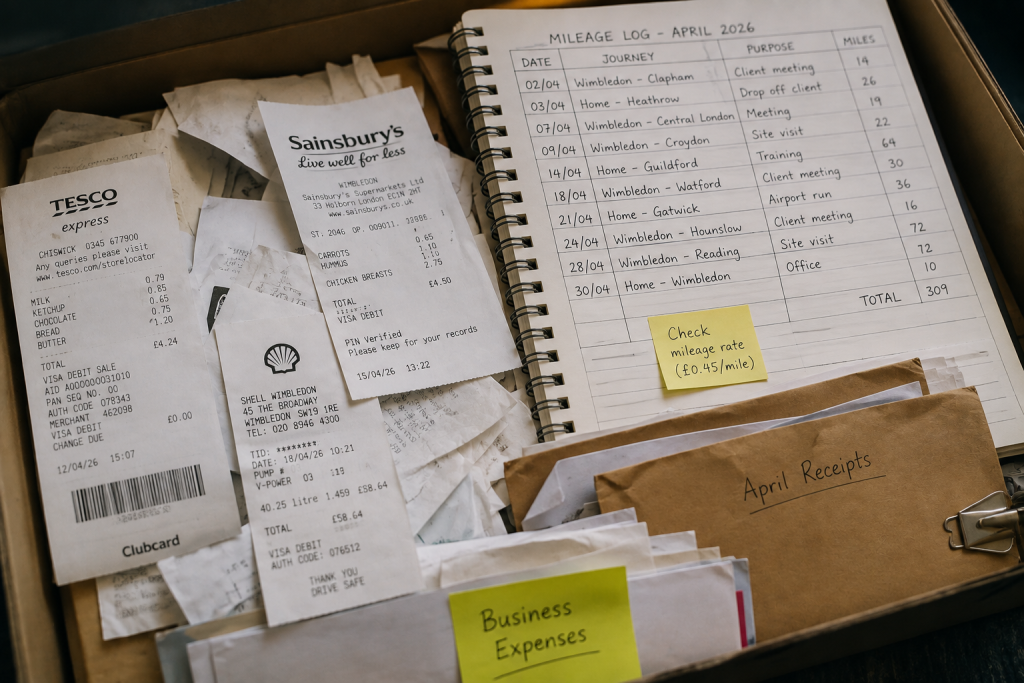 TESCO
express
CHISWICK 0345 677900
Any queries please visit
www.tesco.com/storelocator
MILK 0.79
KETCHUP 0.85
CHOCOLATE 0.65
BREAD 0.75
BUTTER 1.20
TOTAL £4.24
VISA DEBIT SALE
AID A000000031010
PAN SEQ NO. 00
AUTH CODE 078343
MERCHANT 462098
VISA DEBIT £0.00
CHANGE DUE
12/04/26 15:07
Clubcard
Sainsbury's
Live well for less
WIMBLEDON
Sainsbury's Supermarkets Ltd
33 Holborn London EC1N 2HT
www.sainsburys.co.uk
ST. 2046 OP. 009011.
CARROTS 0.65
HUMMUS 1.10
1.10
CHICKEN BREASTS 2.75
TOTAL £4.50
VISA DEBIT
PIN Verified
Please keep for your records
15/04/26 13:22
SHELL WIMBLEDON
45 THE BROADWAY
WIMBLEDON SW19 1RE
TEL: 020 8946 4300
TID: ********
DATE: 18/04/26 10:21
PUMP #
V-POWER 03 :19
40.25 litre 1.459 £58.64
TOTAL £58.64
VISA DEBIT
AUTH CODE: 076512
THANK YOU
DRIVE SAFE
MILEAGE LOG - APRIL 2026
DATE JOURNEY PURPOSE MILES
02/04 Wimbledon - Clapham Client meeting 14
03/04 Home - Heathrow Drop off client 26
07/04 Wimbledon - Central London Meeting 19
09/04 Wimbledon - Croydon Site visit 22
14/04 Home - Guildford Training 64
18/04 Wimbledon - Watford Client meeting 30
21/04 Home - Gatwick Airport run 36
24/04 Wimbledon - Hounslow Client meeting 16
28/04 Wimbledon - Reading Site visit 72
72
30/04 Home - Wimbledon Office 10
TOTAL 309
Check
mileage rate
(£0.45/mile)
April Receipts
Business
Expenses